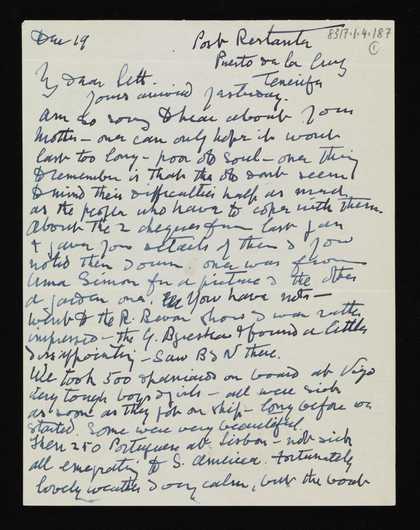 Dec 19
Post Restante
8317.1.4.187
1
Puerto de la Cruz
Tenerife
My Dear Lett.
Yours arrived yesterday.
Am so sorry to hear about your
Mother – one can only hope it wont
last too long – poor old soul – one thing
I remember is that the old dont seem
to mind their difficulties half as much
as the people who have to cope with them
About the 2 cheques from last year
I gave you details of them & you
noted them down. one was from
Anna Simon for a picture & the other
a garden one. You have not –
Went to the R. Bevan show & was rather
impressed – the G. & found a little
disappointing – Saw B & N there.
We took 500 Spaniards on board at Vigo
very tough boys & girls – all were sick
as soon as they got on ship – long before we
started. Some were very beautiful.
Then 250 Portuguese at Lisbon – not sick
all emigrating to S. America. Fortunately
lovely weather & very calm, but the boat